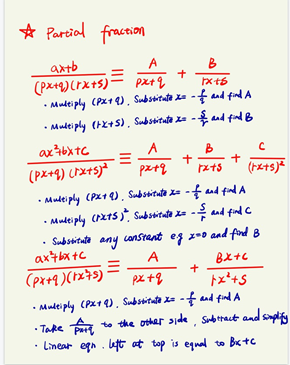 ☆ Partial fraction
ax+b/(px+q)(rx+s) ≡ A/px+q + B/rx+s
• Multiply (px+q), Substitute x= -p/q and find A
• Multiply (rx+s), Substitute x= -s/r and find B
ax²+bx+c/(px+q)(rx+s)² ≡ A/px+q + B/rx+s + C/(rx+s)²
• Multiply (px+q), Substitute x= -p/q and find A
• Multiply (rx+s)², Substitute x= -s/r and find C
• Substitute any constant eg x=0 and find B
ax²+bx+c/(px+q)(rx²+s) ≡ A/px+q + Bx+c/rx²+s
• Multiply (px+q), Substitute x= -p/q and find A
• Take A/px+q to the other side, Subtract and simplify
• Linear eqn. left at top is equal to Bx+c